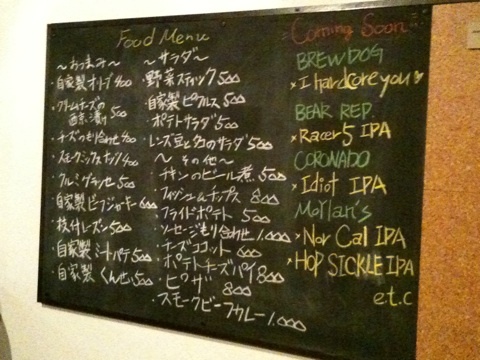 Food Menu
〜おつまみ〜
・自家製オリーブ 400
・クリームチーズの
西京漬け 500
・チーズのもり合わせ
・スモークミックスナッツ 400
・クルミグラッセ 500
・自家製ビーフジャーキー 600
・枝付レーズン 500
・自家製 ミートパテ 500
・自家製 くんせい 500
〜サラダ〜
・野菜スティック 500
・自家製ピクルス 500
・ポテトサラダ 500
・レンズ豆と のサラダ 500
〜その他〜
・チキンのビール煮 500
・フィッシュ&チップス 800
・フライドポテト 500
・ソーセージもり合わせ 1,000
・チーズココット 600
・ポテトチーズパイ 800
・ピザ 800
・スモークビーフカレー 1,000
Coming Soon
BREWDOG
× I hardcore you ♥
BEAR REP.
× Racer 5 IPA
CORONADO
× Idiot IPA
Moylan's
× Nor Cal IPA
× HOP SICKLE IPA
et.c